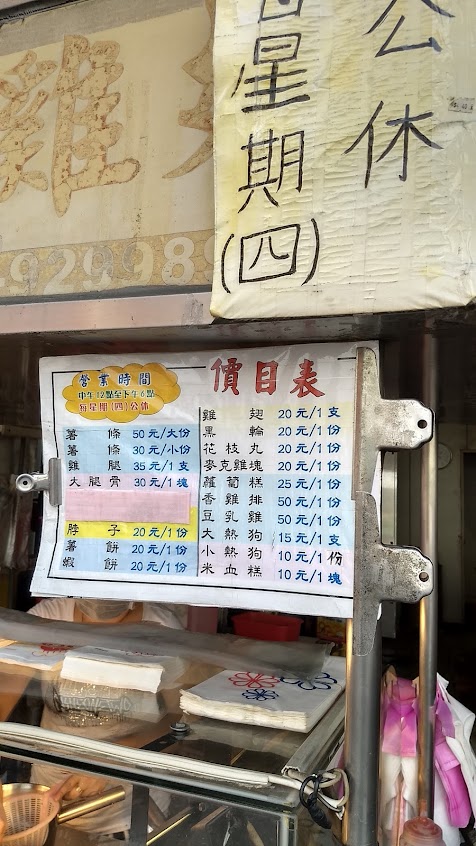 雞
929989
星期(四)
公休
價目表
營業時間
中午12點至下午6點
每星期(四)公休
薯條 50元/大份
薯條 30元/小份
雞腿 35元/1支
大腿骨 30元/1塊
脖子 20元/1份
薯餅 20元/1份
蝦餅 20元/1份
雞翅 20元/1支
黑輪 20元/1份
花枝丸 20元/1份
麥克雞塊 20元/1份
蘿蔔糕 25元/1份
香雞排 50元/1份
豆乳雞 50元/1份
大熱狗 15元/1支
小熱狗 10元/1份
米血糕 10元/1塊